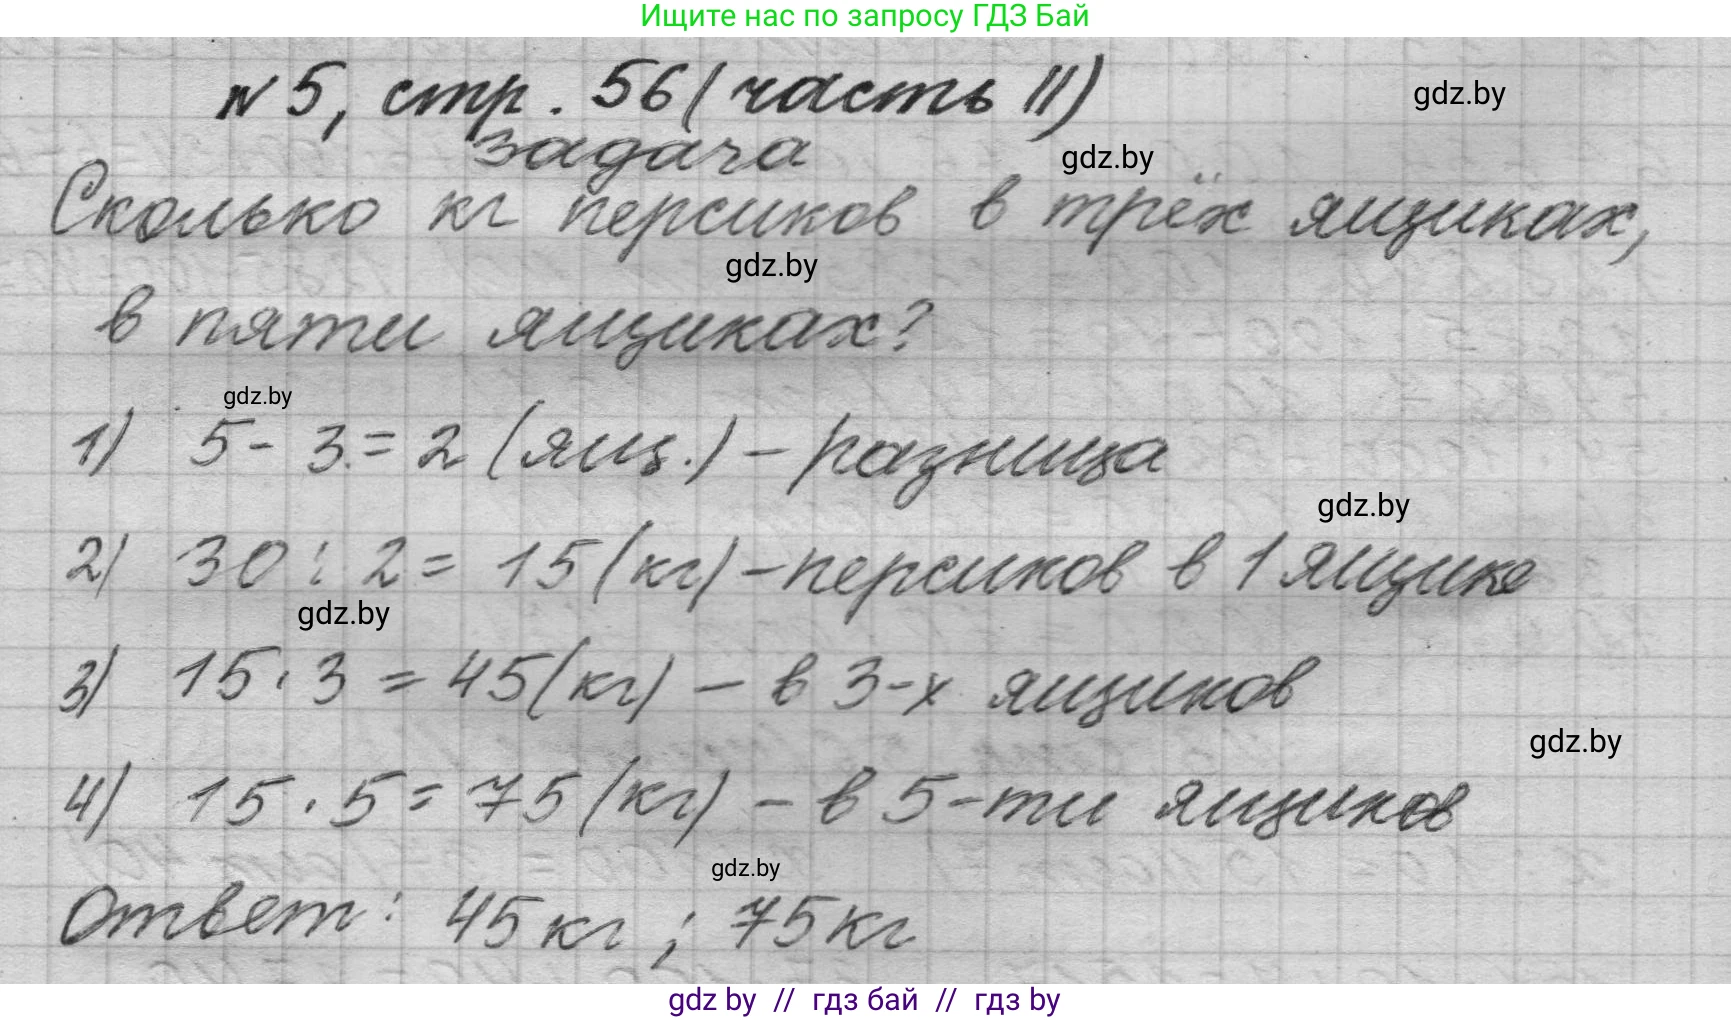 Ищите нас по запросу ГДЗ Бай
№5, стр. 56 (часть II)
gdz.by
задача
gdz.by
Сколько кг персиков в трёх ящиках,
gdz.by
в пяти ящиках?
gdz.by
1) 5 - 3 = 2 (ящ.) - разница
gdz.by
2) 30 : 2 = 15 (кг) - персиков в 1 ящике
gdz.by
3) 15 · 3 = 45 (кг) - в 3-х ящиков
gdz.by
4) 15 · 5 = 75 (кг) - в 5-ти ящиков
gdz.by
Ответ: 45 кг ; 75 кг
gdz by // гдз бай // гдз by